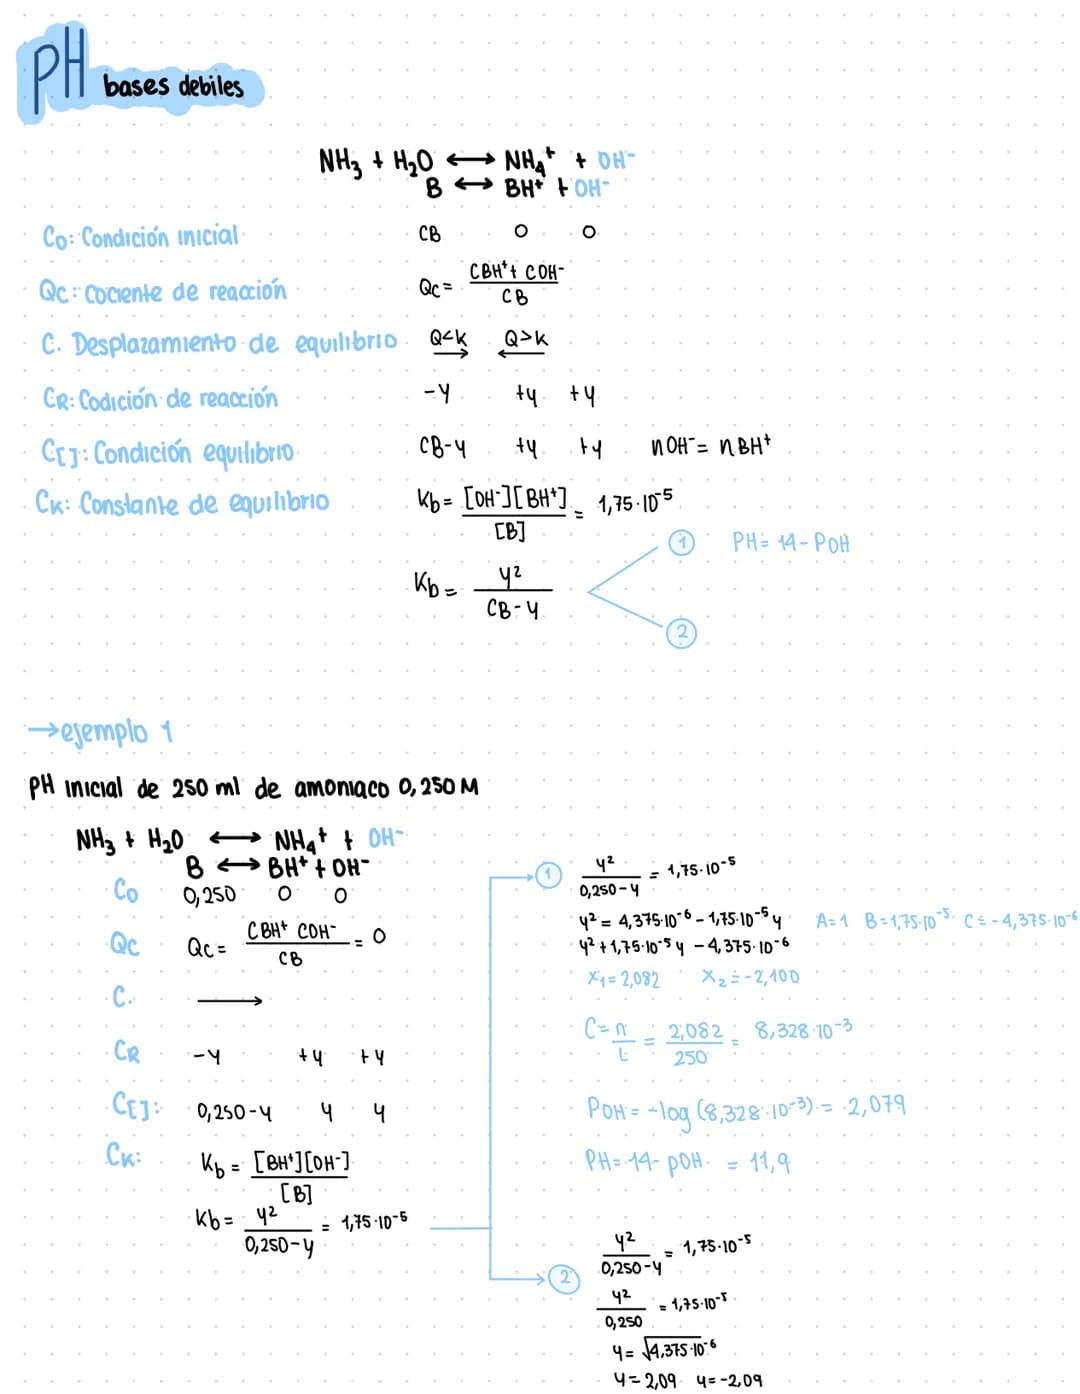 PH bases debiles
NH₃ + H₂O ⟷ NH₄⁺ + OH⁻
B ⟷ BH⁺ + OH⁻
Co: Condición inicial CB 0 0
Qc: cociente de reacción Qc = (CBH⁺+ COH⁻)/CB
C. Desplazamiento de equilibrio Q<k → Q>k ←
CR: Codición de reacción -y +y +y
C[]: Condición equilibrio CB-y +y +y nOH⁻ = nBH⁺
CK: Constante de equilibrio Kb = [OH⁻][BH⁺]/[B] = 1,75·10⁻⁵
① PH = 14 - POH
Kb = y²/(CB-y)
②
→ejemplo 1
PH inicial de 250 ml de amoniaco 0,250 M
NH₃ + H₂O ⟷ NH₄⁺ + OH⁻
B ⟷ BH⁺ + OH⁻
Co 0,250 0 0
Qc Qc = (CBH⁺ COH⁻)/CB = 0
C. →
CR -y +y +y
C[]: 0,250-y y y
CK: Kb = [BH⁺][OH⁻]/[B]
Kb = y²/(0,250-y) = 1,75·10⁻⁵
① y²/(0,250-y) = 1,75·10⁻⁵
y² = 4,375·10⁻⁶ - 1,75·10⁻⁵ y A=1 B=1,75·10⁻⁵ C=-4,375·10⁻⁶
y² + 1,75·10⁻⁵ y - 4,375·10⁻⁶
X₁ = 2,082 X₂ = -2,100
C = n/L = 2,082/250 = 8,328·10⁻³
POH = -log (8,328·10⁻³) = 2,079
PH = 14 - pOH = 11,9
② y²/(0,250-y) = 1,75·10⁻⁵
y²/0,250 = 1,75·10⁻⁵
y = √4,375·10⁻⁶
y = 2,09 y = -2,09